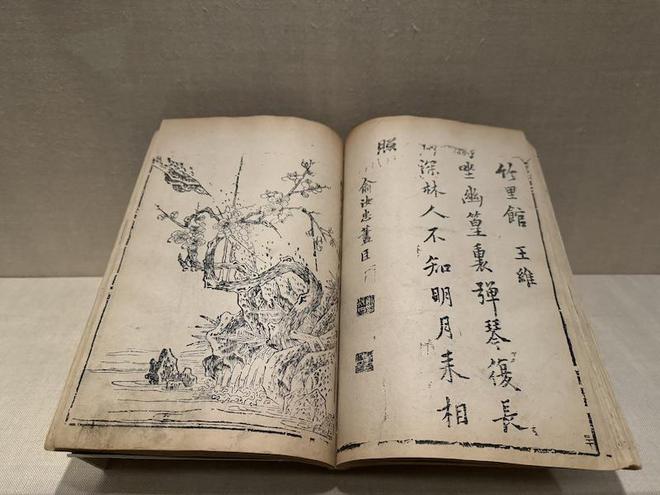 竹里館 王維
坐幽篁裏彈琴復長
深林人不知明月来相
照
俞汝忠藎臣